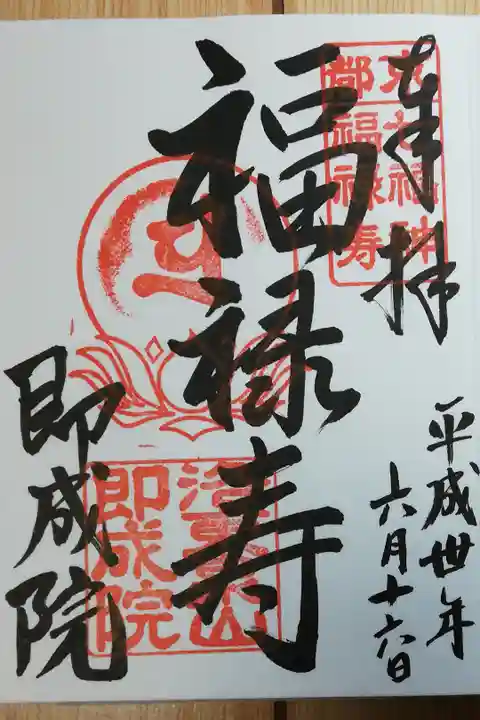 奉拝
平成卅年
六月十六日
福禄寿
即成院
京都
七福神
福禄寿
即成院